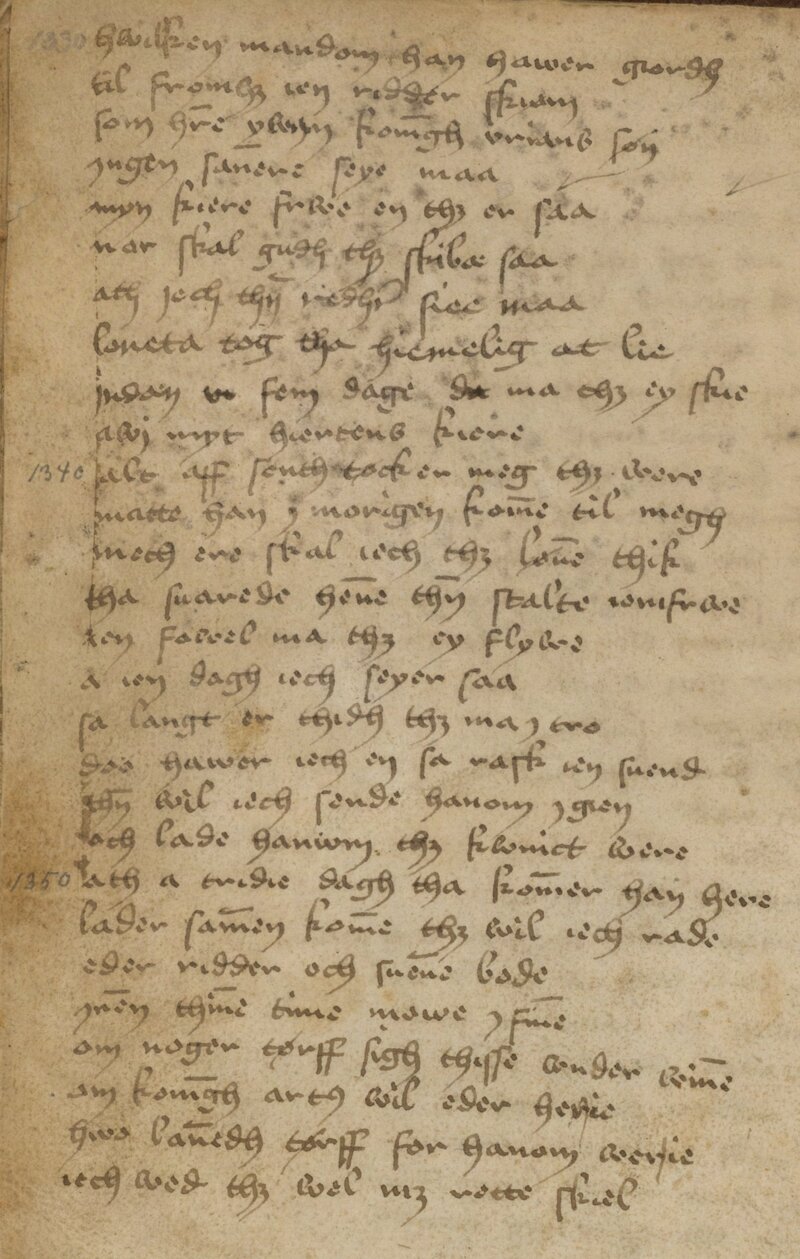 1330 hwilken mandom han hawer giordh
til fromhꝫ ien ridder skiøn
som hr̄e ywan kom̄gh vrians søn
jngen san̄ere seye maa
myn kiere frwe en thꝫ er saa
nar skal gudh thꝫ skibæ saa
ath jech thn̄ riddhr̄ siee maa
loneta tog tha hiemelig at lie
jndan fem dage da ma thꝫ ey skie
awj myt hiertens kiere
1340 alt aff south tocker meg thꝫ were
matte han j morigen kom̄e til megh
mech ere skal iech thꝫ lou̅e thik
tha suarede hen̄e thn̄ stalte iomfrwe
ien fowel ma thꝫ ey flywe
a ien dagh iech seyer saa
sa langt er thidh thꝫ ma j tro
doo hawer iech en sa rask ien suend
thn̄ wil iech sende hanom jgien
och lade hanwm thꝫ kwnict were
1350 ath a tridie dagh tha kom̄er han here
lader sam̄en kom̄e thꝫ wil iech rade
eder ridder och suen̄e bode
jnēn thim̄e time mowe j fin̄e
om noger tørff sigh thisse wnder win̄e
om kon̄igh artꝰ wil eder herie
hwo lan̄edh tørff for hanom werie
iech wed thꝫ wel mꝫ rette skiel